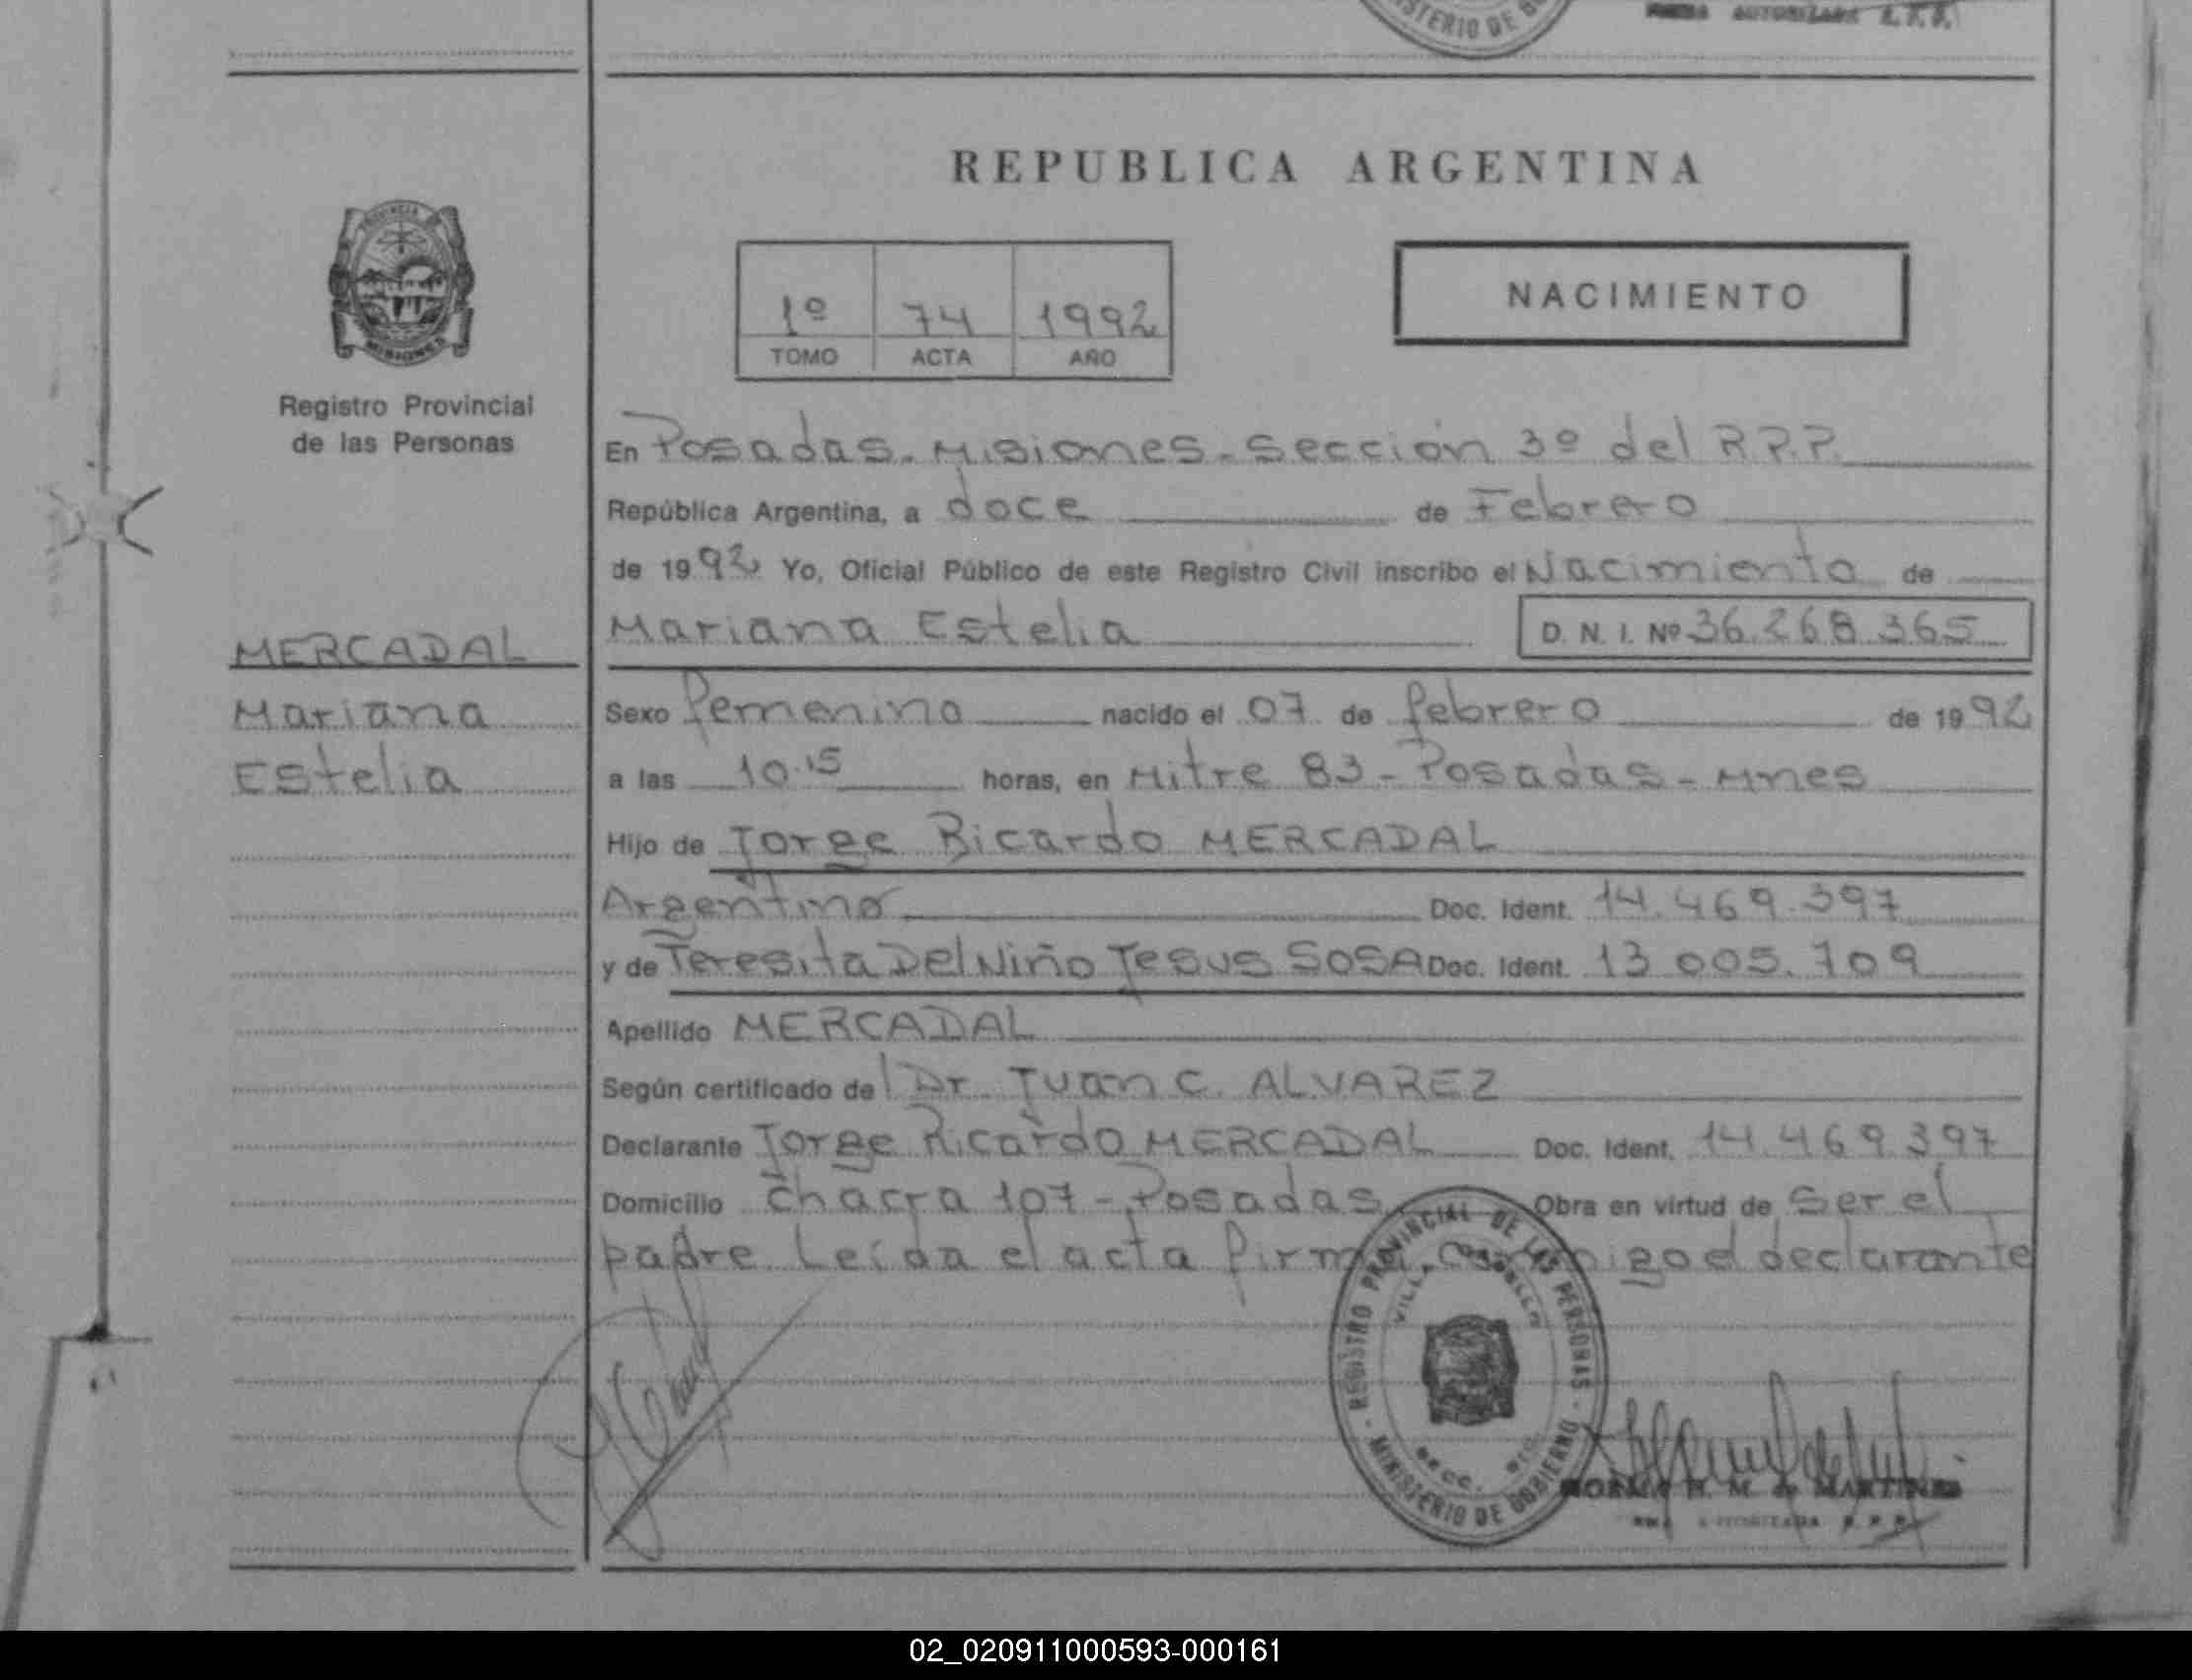 MINISTERIO DE GO
FIRMA AUTORIZADA R.P.P.
REPUBLICA ARGENTINA
PROVINCIA
MISIONES
Registro Provincial
de las Personas
1º 74 1992
TOMO ACTA AÑO
NACIMIENTO
En Posadas. Misiones. Sección 3º del R.P.P.
República Argentina, a doce de Febrero
de 1992 Yo, Oficial Público de este Registro Civil inscribo el Nacimiento de
Mariana Estelia D. N. I. Nº 36.268.365
MERCADAL
Mariana
Estelia
Sexo femenino nacido el 07 de febrero de 1992
a las 10.15 horas, en Mitre 83 - Posadas - Mnes
Hijo de Jorge Ricardo MERCADAL
Argentino Doc. Ident. 14.469.397
y de Teresita Del Niño Jesus SOSA Doc. Ident. 13 005.709
Apellido MERCADAL
Según certificado del Dr. Juan C. ALVAREZ
Declarante Jorge Ricardo MERCADAL Doc. Ident. 14.469.397
Domicilio Chacra 107 - Posadas Obra en virtud de Ser el
padre. Leída el acta firma conmigo el declarante
REGISTRO PROVINCIAL DE LAS PERSONAS - MINISTERIO DE GOBIERNO
H. M. de MARTINEZ
AUTORIZADA R.P.P.
02_020911000593-000161